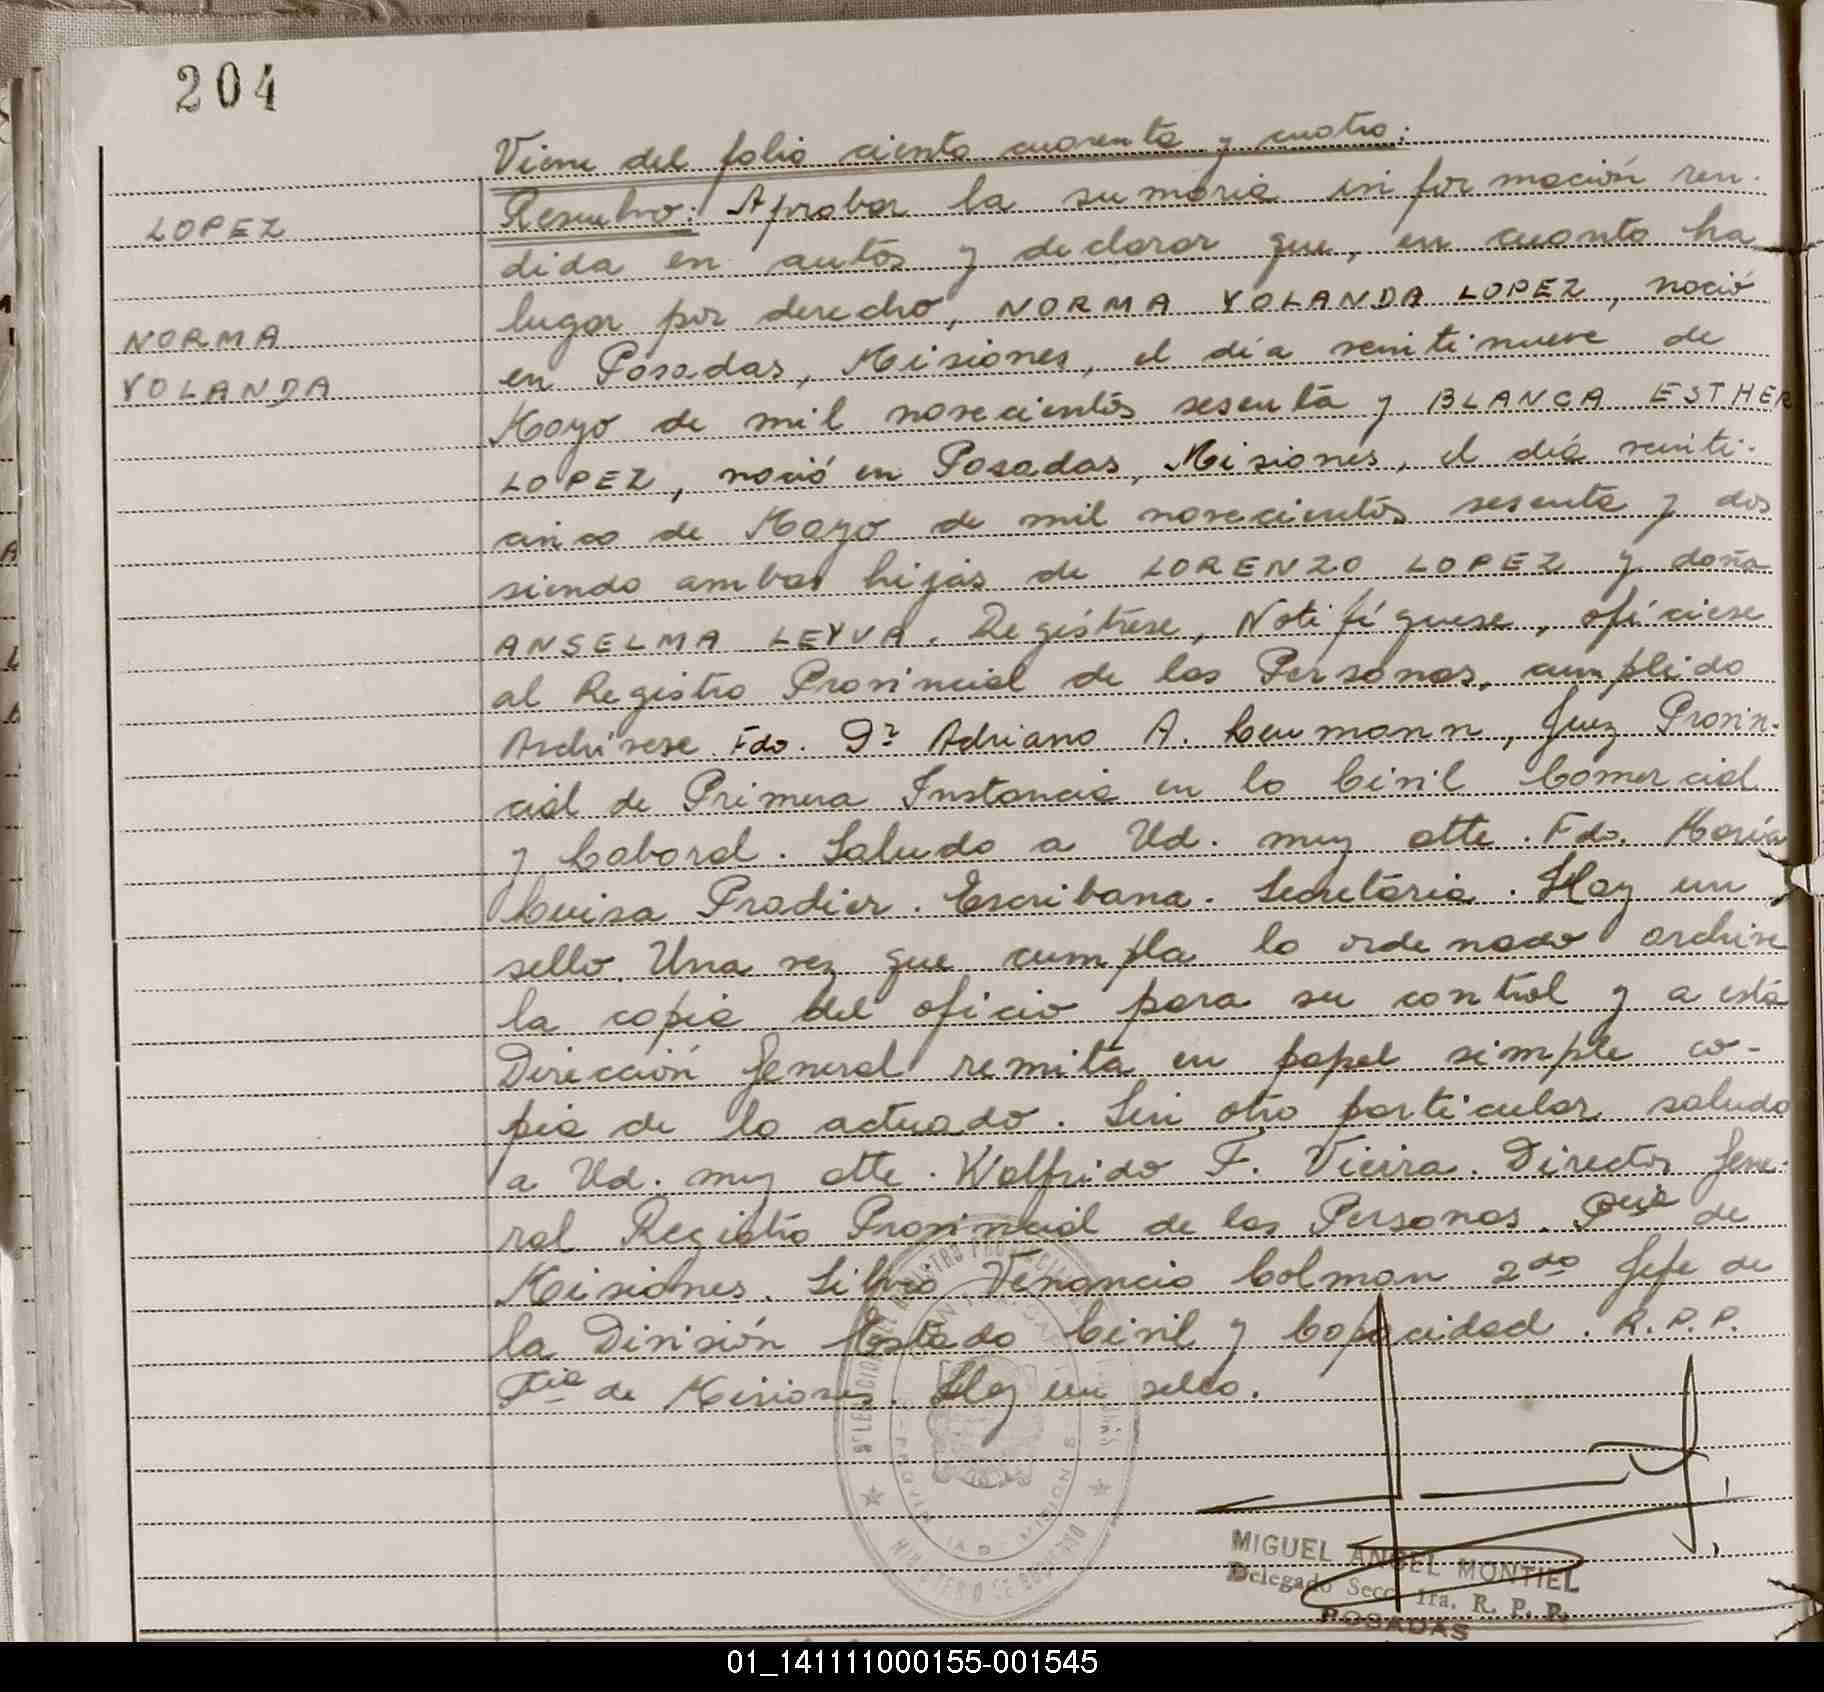 204
Viene del folio ciento cuarenta y cuatro:
LOPEZ
Resuelvo: Aprobar la sumaria información ren-
dida en autos y declarar que, en cuanto ha
lugar por derecho, NORMA YOLANDA LOPEZ, nació
NORMA
en Posadas, Misiones, el día veintinueve de
YOLANDA
Mayo de mil novecientos sesenta y BLANCA ESTHER
LOPEZ, nació en Posadas, Misiones, el día veinti-
cinco de Mayo de mil novecientos sesenta y dos
siendo ambas hijas de LORENZO LOPEZ y doña
ANSELMA LEYVA. Regístrese, Notifíquese, ofíciese
al Registro Provincial de las Personas, cumplido
Archívese Fdo. Dr Adriano A. Leumann, Juez Provin-
cial de Primera Instancia en lo Civil Comercial
y Laboral. Saludo a Ud. muy atte. Fdo. María
Luisa Pradier. Escribana. Secretaria. Hay un
sello. Una vez que cumpla lo ordenado archive
la copia del oficio para su control y a esta
Dirección General remita en papel simple co-
pia de lo actuado. Sin otro particular saludo
a Ud. muy atte. Wolfrido F. Vieira. Director Gene-
ral Registro Provincial de las Personas. Pcia de
Misiones. Silvio Venancio Colman 2do Jefe de
la División Estado Civil y Capacidad. R.P.P.
Pcia de Misiones. Hay un sello.
MIGUEL ANGEL MONTIEL
Delegado Secc. 1ra. R. P. P.
POSADAS
01_141111000155-001545